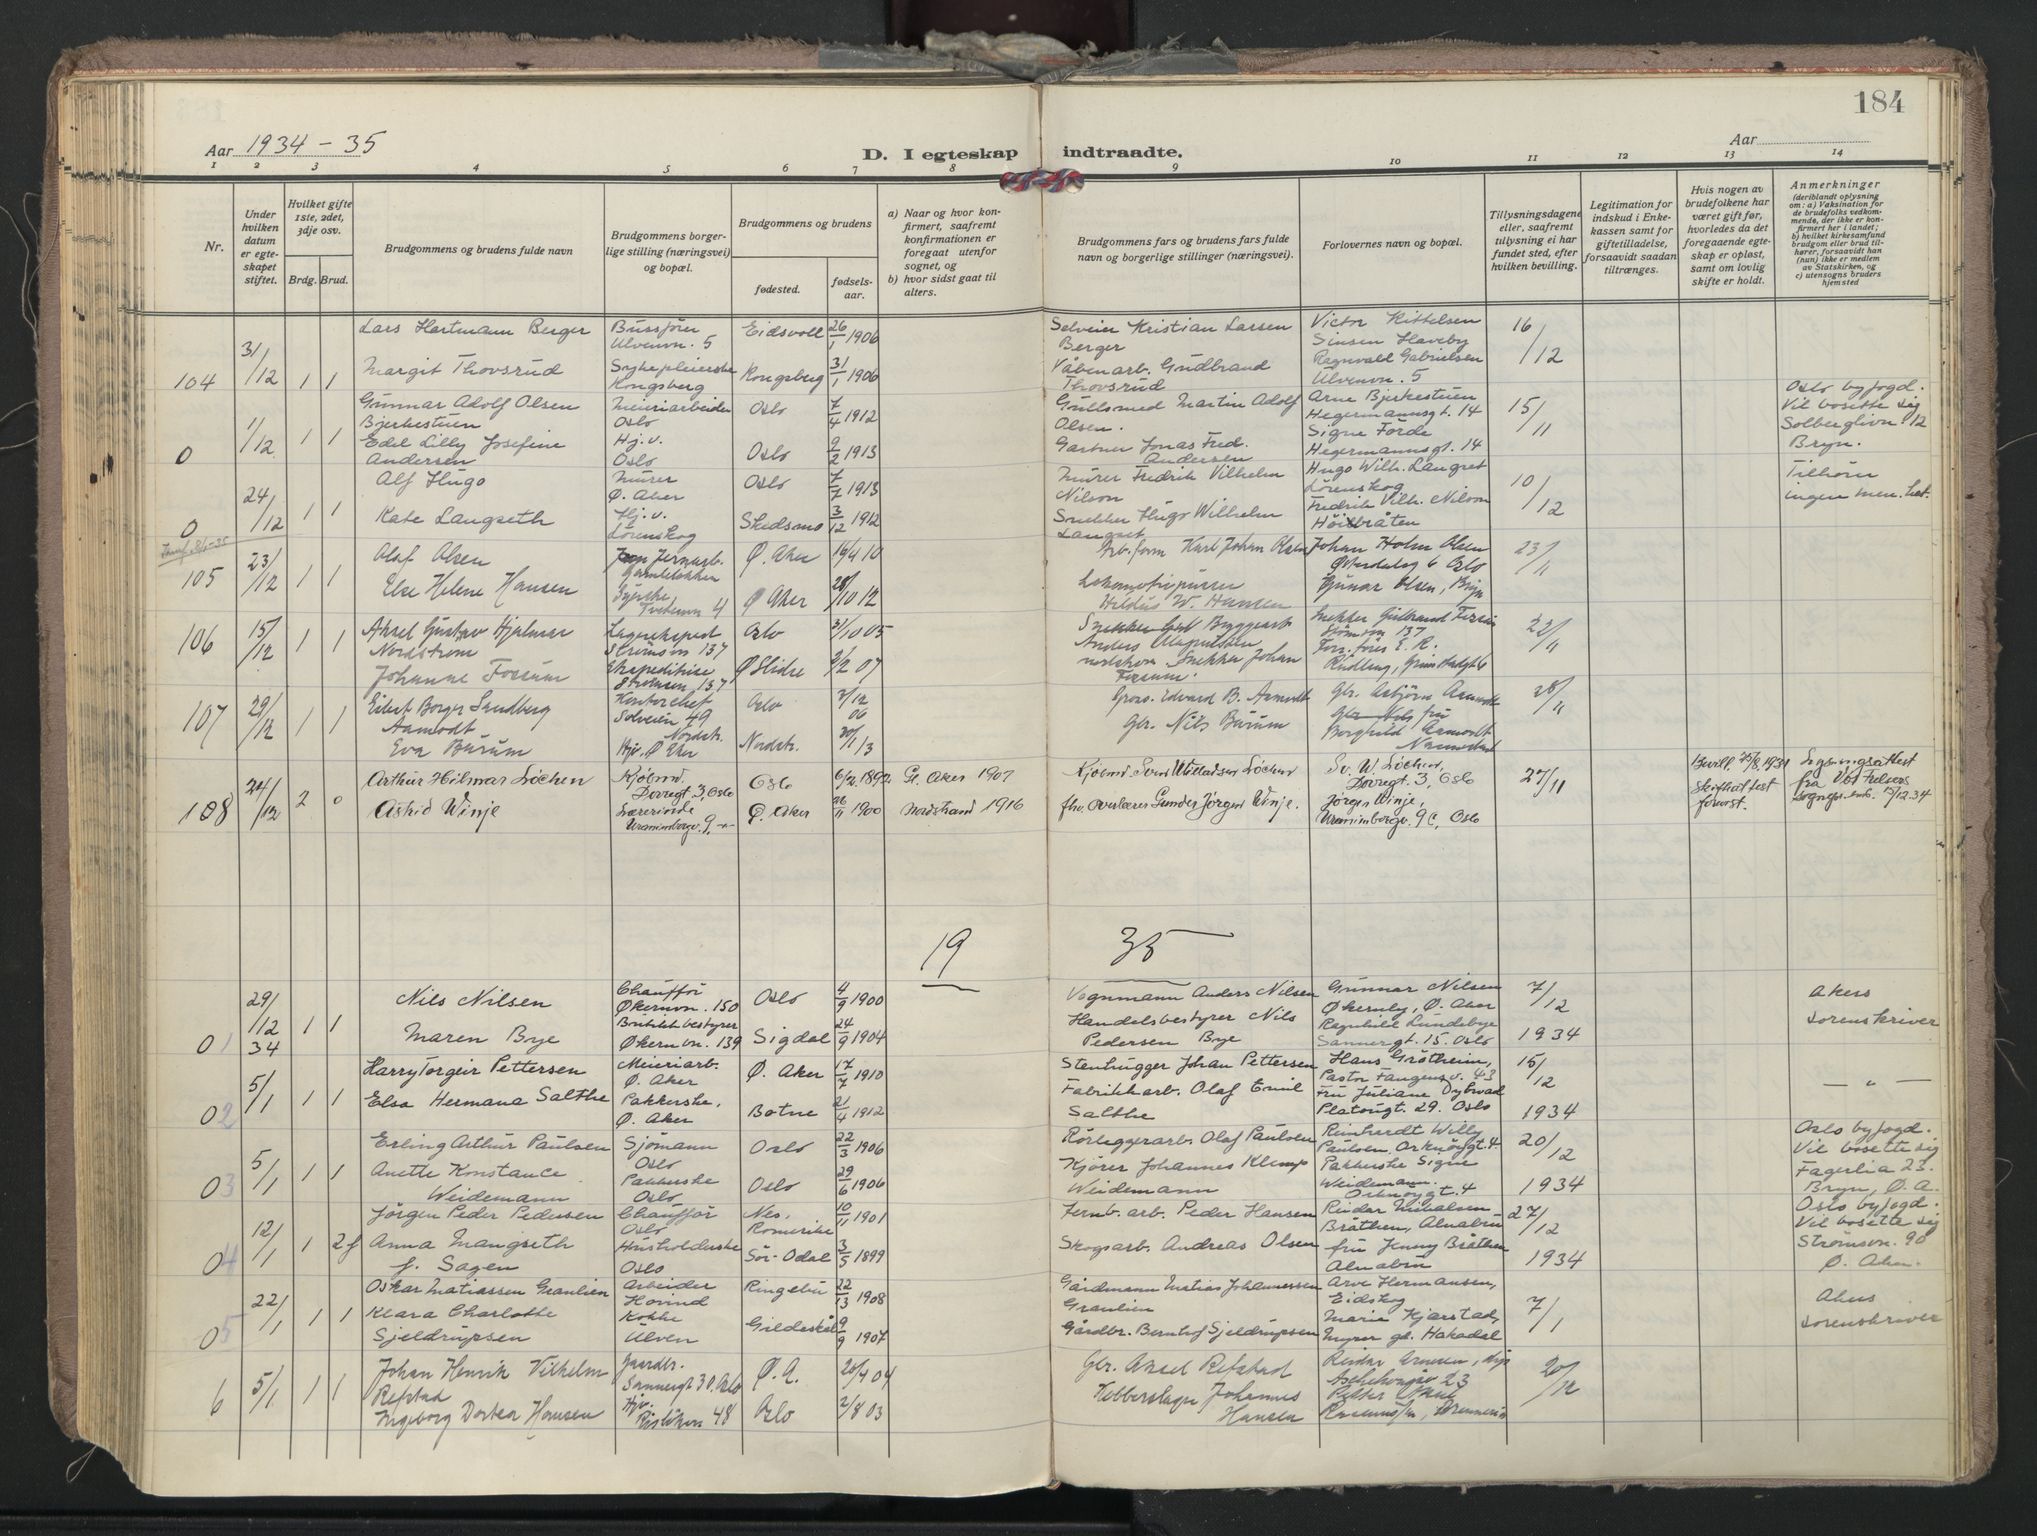 184
Aar 1934 - 35
D. I egteskap indtraadte.
Aar
1 2 3 4 5 6 7 8 9 10 11 12 13 14
Nr.
Under hvilken datum er egteskapet stiftet.
Hvilket gifte 1ste, 2det, 3dje osv.
Brdg. Brud.
Brudgommens og brudens fulde navn
Brudgommens borgerlige stilling (næringsvei) og bopæl.
Brudgommens og brudens
fødested.
fødselsaar.
a) Naar og hvor konfirmert, saafremt konfirmationen er foregaat utenfor sognet, og
b) hvor sidst gaat til alters.
Brudgommens fars og brudens fars fulde navn og borgerlige stillinger (næringsvei).
Forlovernes navn og bopæl.
Tillysningsdagene eller, saafremt tillysning ei har fundet sted, efter hvilken bevilling.
Legitimation for indskud i Enkekassen samt for giftetilladelse, forsaavidt saadan tiltrænges.
Hvis nogen av brudefolkene har været gift før, hvorledes da det foregaaende egteskap er opløst, samt om lovlig skifte er holdt.
Anmerkninger
(deriblandt oplysning om: a) Vaksination for de brudefolks vedkommende, der ikke er konfirmert her i landet;
b) hvilket kirkesamfund brudgom eller brud tilhører, forsaavidt han (hun) ikke er medlem av Statskirken, og
c) utensogns bruders hjemsted
104 31/12 1 1
Lars Hartmann Berger Bussjåfør Ulvenvn. 5 Eidsvoll 26/1 1906
Selveier Kristian Larsen Berger
Victor Kittelsen Sinsen Haveby
16/12
Margit Thovsrud Sykepleierske Kongsberg Kongsberg 31/1 1906
Våbenarb. Gudbrand Thovsrud
Ragnvald Gabrielsen Ulvenvn. 5
0 1/12 1 1
Gunnar Adolf Olsen Bjerkestuen Meieriarbeider Oslo Oslo 7/4 1912
Gullsmed Martin Adolf Olsen.
Arne Bjerkestuen Hegermannsgt. 14
15/11
Oslo byfogd. Vil bosette sig Solberglivn. 12 Bryn.
Edel Lilly Josefine Andersen Hj.v. Oslo Oslo 9/2 1913
Gartner Jonas Fred. Andersen
Signe Førde Hegermannsgt. 14
0 24/12 1 1
Alf Hugo Murer Ø. Aker Oslo 7/7 1913
Murer Fredrik Vilhelm Nilson
Hugo Wilh. Langset Lørenskog
10/12
Tilhører ingen men.het.
Kate Langseth Hj.v. Lørenskog Skedsmo 3/12 1912
Snekker Hugo Wilhelm Langset
Fredrik Vilh. Nilson Høibråten
105 23/12 1 1
Olaf Olsen Jernarb. Ø. Aker 16/4 10
Arb.form Karl Johan Olsen
Johan Holm Olsen Østerdalsg 6 Oslo
23/11
Else Helene Hansen Tvetenvn 4 Ø Aker 28/10 12
Hildus W. Hansen
Gunnar Olsen, Bryn
106 15/12 1 1
Aksel Gustav Hjalmar Nordstrøm Lagerekspedt Strømsvn 137 Oslo 31/10 05
Byggearb Anders Magnussen Nordstrøm
Snekker Gulbrand Fossum Strømsvn 137
22/11
Johanne Fossum Ekspeditrise Strømsvn 137 Ø Slidre 2/2 07
Snekker Johan Fossum.
107 29/12 1 1
Eilert Borger Sandberg Aamodt Kontorchef Solveien 49 Nordstr. Oslo 3/12 06
Gross. Edvard B. Aamodt
Gbr. Asbjørn Aamodt
28/11
Eva Burum Hjv. Ø Aker Nordstr. 20/1 13
Gbr. Nils Burum
fru Borghild Aamodt
108 24/12 2 0
Arthur Hilmar Løchen Kjøbmd. Dovregt. 3, Oslo Oslo 6/2. 1892. Gl. Aker 1907
Kjøbmd Sven Willadsen Løchen
Sv. W. Løchen, Dovregt. 3, Oslo
27/11
Bevill. 1931 Skifteattest forevist.
Lysningsattest fra Vår Frelsers sognepr.emb. 15/12 34
Astrid Winje Lærerinde Uranienborgv. 9. Ø. Aker 26/11 1900 Nordstrand 1916
fhv. overlærer Gunder Jørgen Winje.
Jørgen Winje, Uranienborgv. 9c, Oslo
19 35
01 29/12 34 1 1
Nils Nilsen Chauffør Økernvn. 150 Oslo 4/9 1900
Vognmann Anders Nilsen
Gunnar Nilsen Økernby, Ø. Aker
7/12 1934
Akers Sorenskriver
Maren Bye Butikkbestyrer Økernvn. 139 Sigdal 24/9 1904
Handelsbestyrer Nils Pedersen Bye
Ragnhild Lundebye Sannergt. 15. Oslo
02 5/1 1 1
Harry Torgeir Pettersen Meieriarb. Ø. Aker Ø. Aker 17/7 1910
Stenhugger Johan Pettersen
Hans Grøtheim, Pastor Fangensv. 43
15/12 1934
— " —
Elsa Hermana Salthe Pakkerske, Ø. Aker Botne 21/4 1912
Fabrikkarb. Olaf Emil Salthe
Fru Juliane Dybvad Platousgt. 29. Oslo
03 5/1 1 1
Erling Arthur Paulsen Sjømann Oslo Oslo 22/3 1906
Rørleggerarb. Olaf Paulsen
Reinhardt Willy Paulsen, Orknøygt. 4
20/12 1934
Oslo byfogd. Vil bosette sig Fagerlia 23. Bryn, Ø. A.
Anette Konstance Weidemann Pakkerske Oslo Oslo 29/6 1906
Kjører Johannes Klemp Weidemann
Pakkerske Signe Weidemann. Orknøygt. 4
04 12/1 1 2 f
Jørgen Peder Pedersen Chauffør Oslo Nes, Romerike 10/11 1901
Jernb. arb. Peder Hansen
Reidar Bråthen, Alnabru
27/12 1934
Oslo byfogd. Vil bosette sig Strømsvn. 90 Ø. Aker.
Anna Mangseth f. Sagen Husholderske Oslo Sør-Odal 3/5 1899
Skogsarb. Andreas Olsen
fru Jenny Bråthen Alnabru
05 22/1 1 1
Oskar Matiassen Graulien Arbeider Hovind Ringebu 22/13 1908
Gårdmann Matias Johannessen Graulien
Arve Hermansen, Eidskog
7/1
Akers Sorenskriver
Klara Charlotte Sjeldrupsen Kokke Ulven Gildeskål 9/9 1907
Gårdbr. Berntof Sjeldrupsen
Marie Kjærstad, Myrer gd. Hakadal
6 5/1 1 1
Johan Henrik Vilhelm Refstad Sannergt 30. Oslo Ø. A. 20/4 04
Gbr. Aksel Refstad
20/12
Ingeborg Dortea Hansen Hjv. 48 Oslo 2/8 03
Kobberslager Johannes Hansen